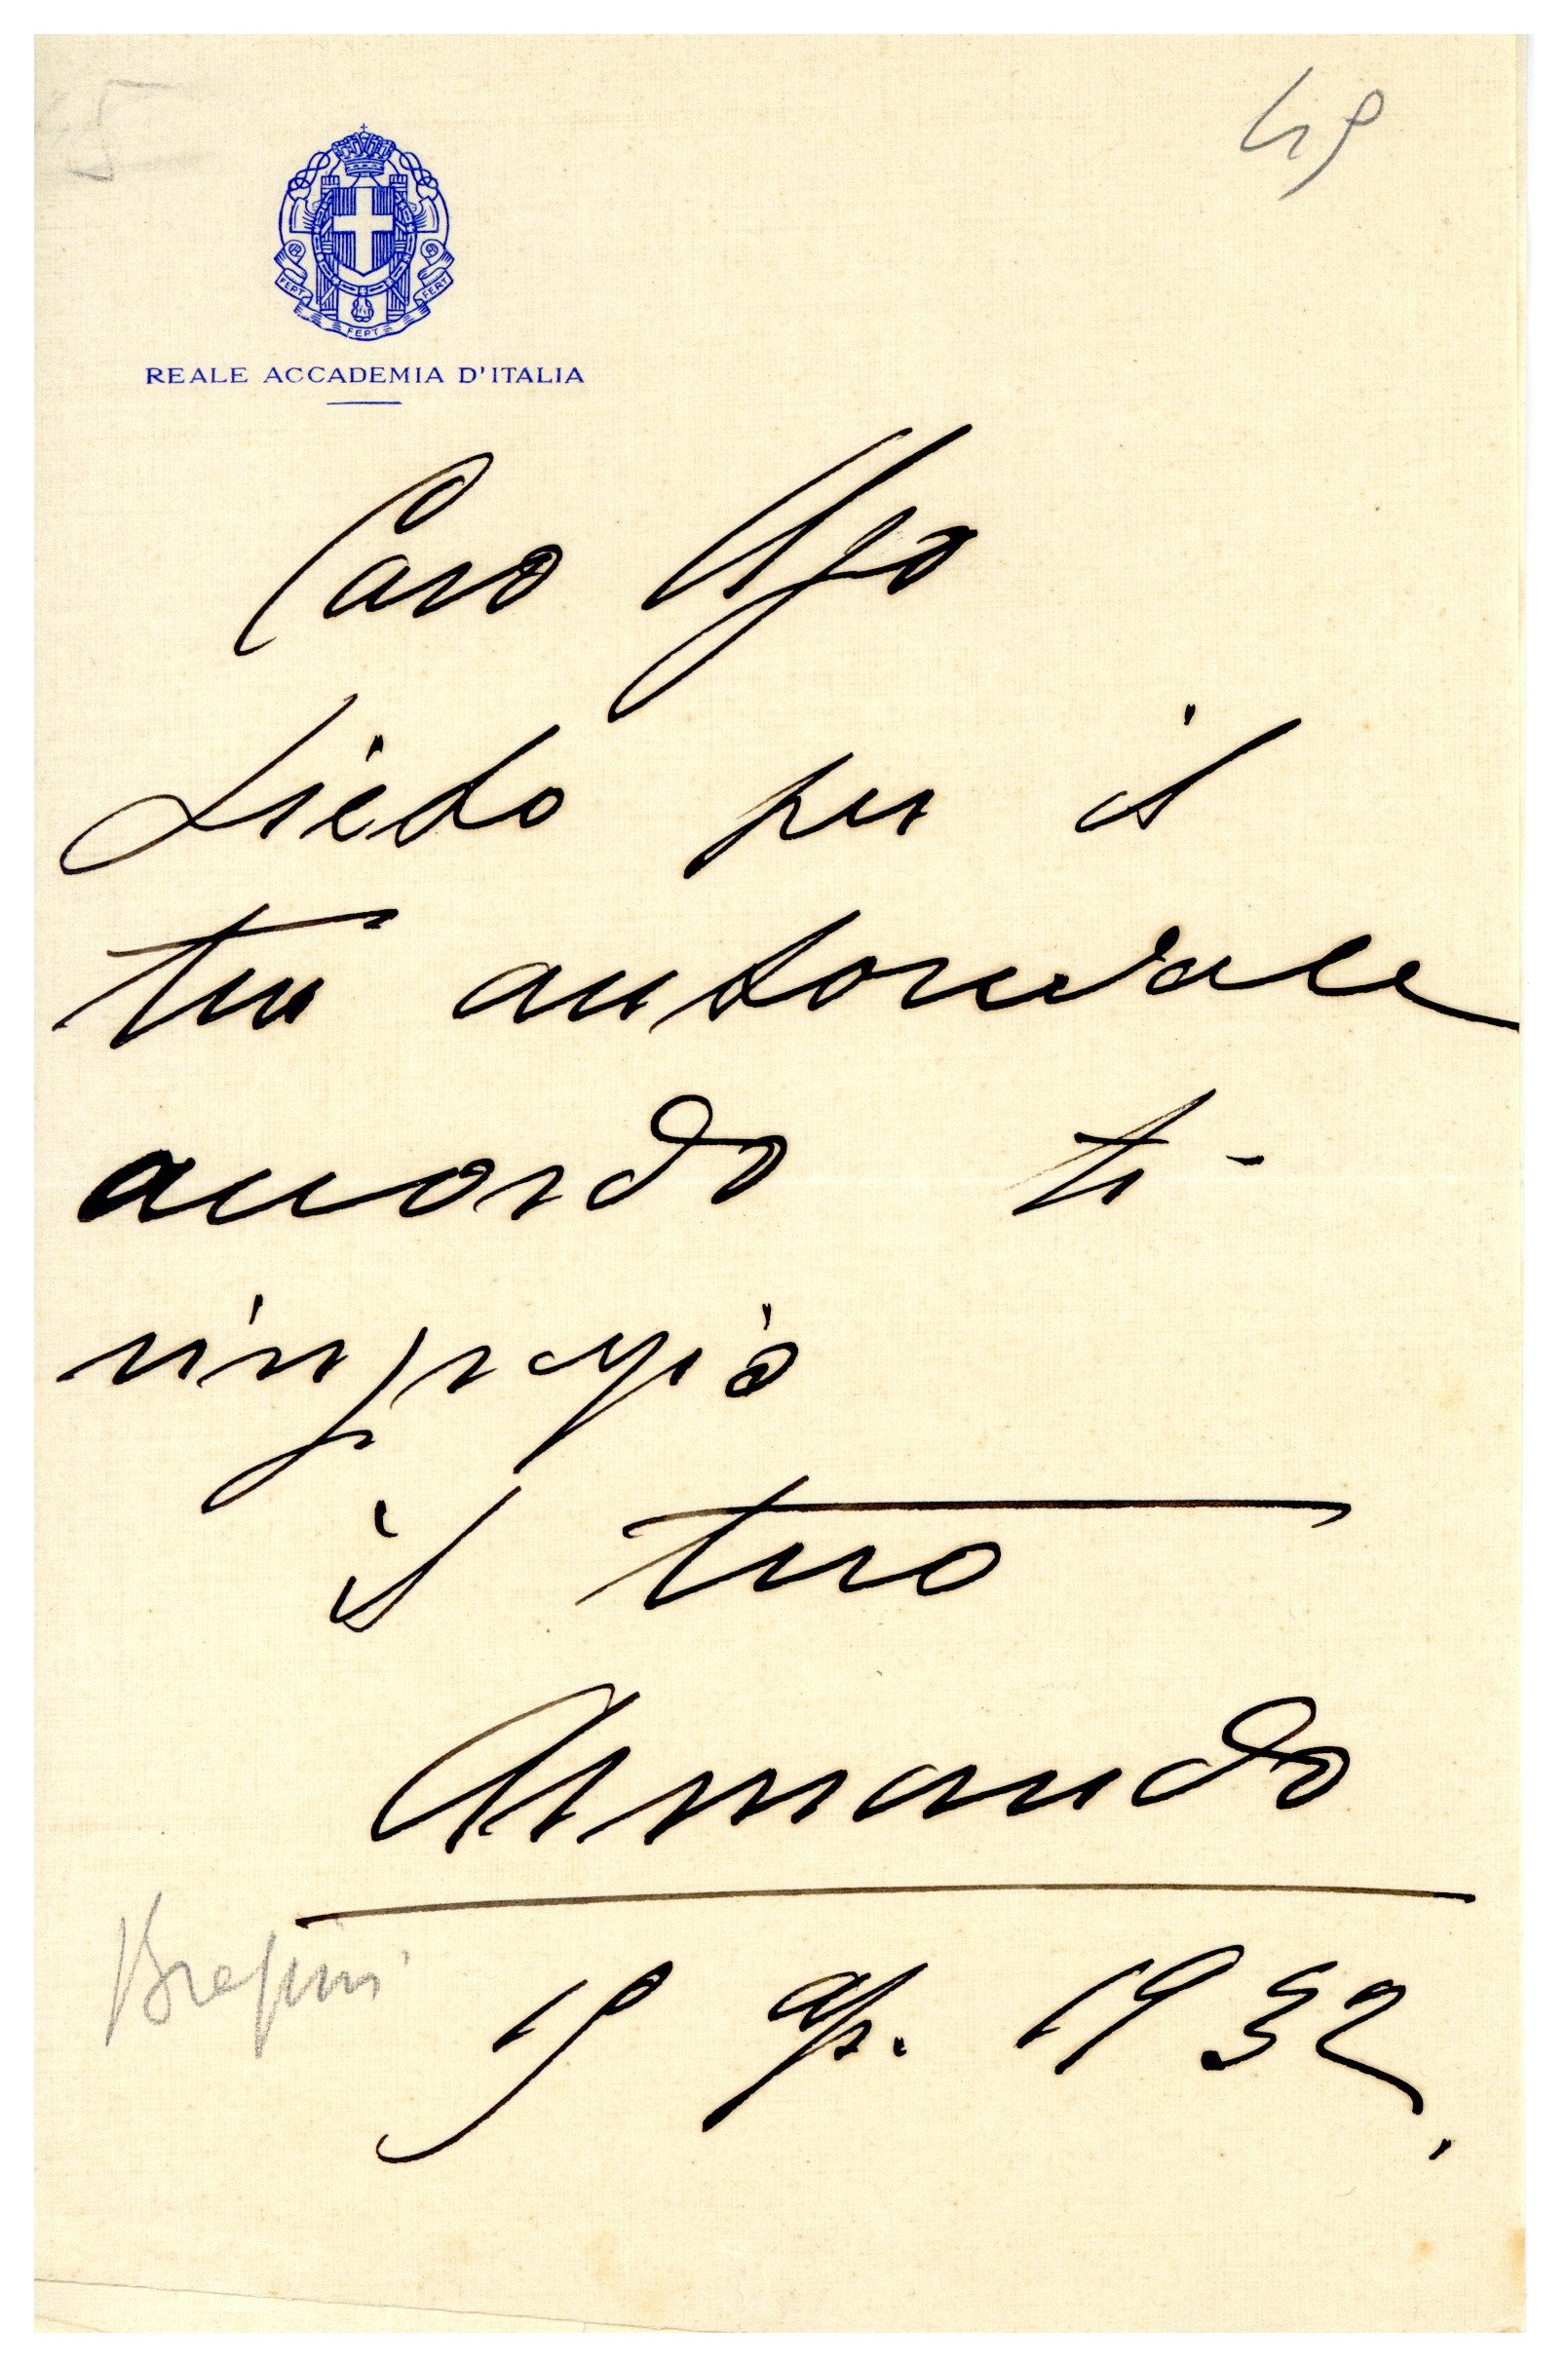 5
49
FERT FERT
FERT
REALE ACCADEMIA D'ITALIA
Caro Ugo
Lieto per il
tuo autorevole
accordo ti
ringrazio
il tuo
Armando
Brasini
19 ap. 1932.